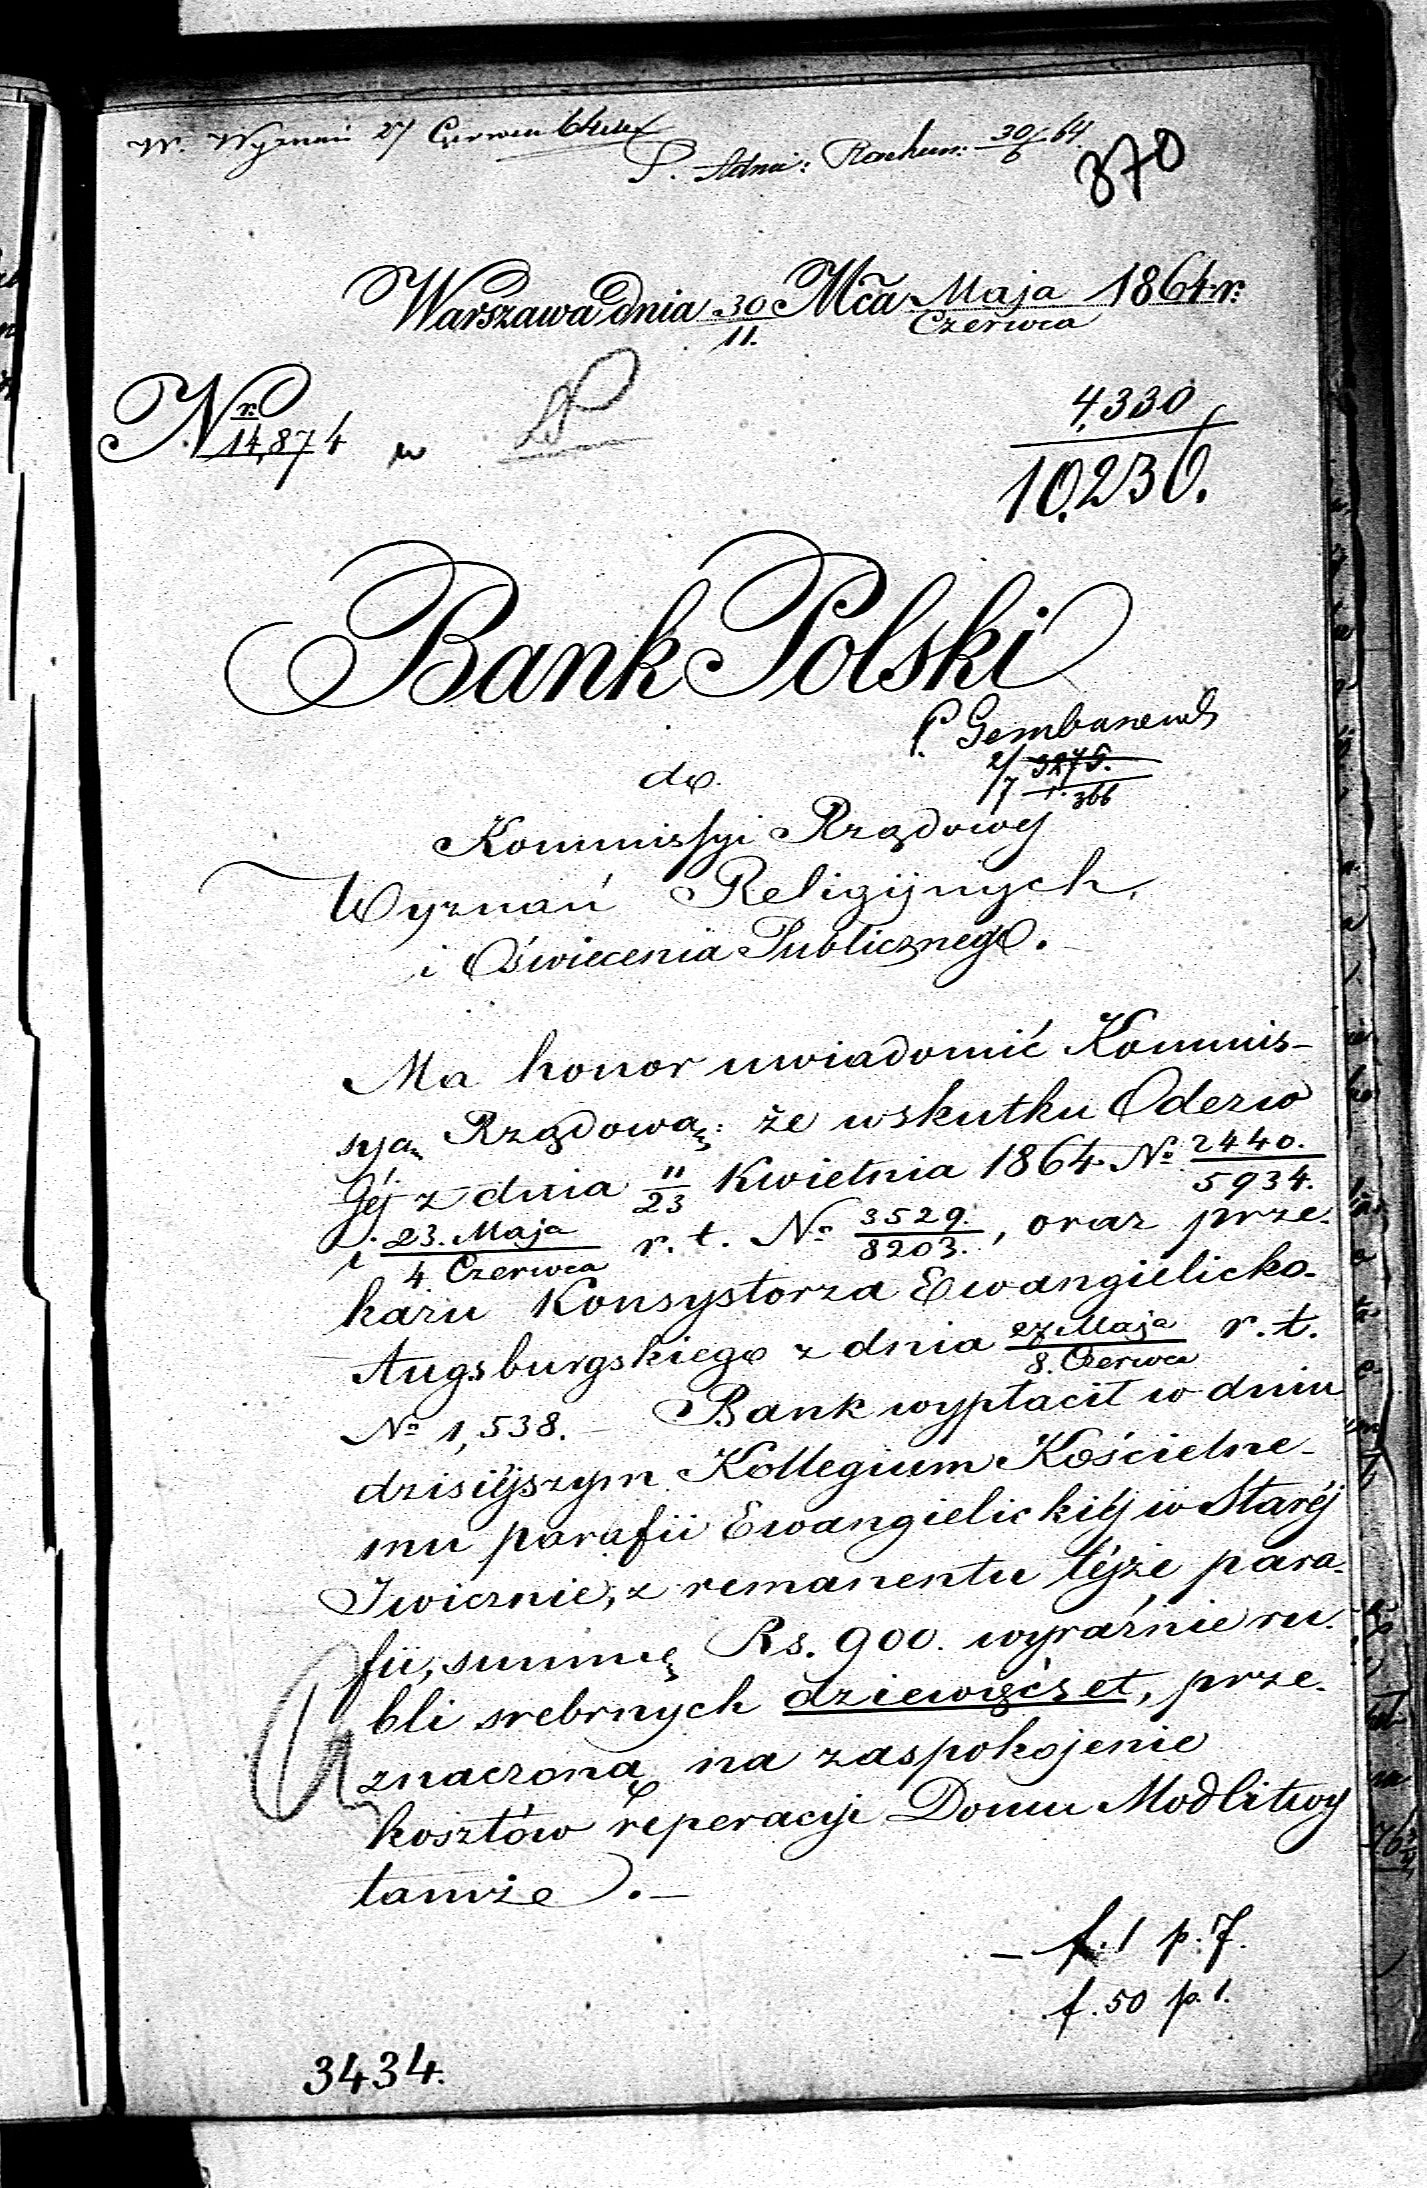 W. Wyznań 27 Czerwca 64
P. Adm: Rachun: 30/6 64.
370
Warszawa dnia 30/11. Mca Maja/Czerwca 1864 r.
Nr 14,874 w
4,330
10,236.
Bank Polski
P.
2/7 3275.
366
do
Kommissyi Rządowej
Wyznań Religijnych,
i Oświecenia Publicznego.
Ma honor uwiadomić Kommis-
syą Rządową: że wskutku Odezw
Jéj z dnia 11/23 Kwietnia 1864 No 2440./5934.
i 23. Maja/4 Czerwca r. t. No 3529./8203., oraz prze-
kazu Konsystorza Ewangielicko-
Augsburgskiego z dnia 27 Maja/8. Czerwca r. t.
No 1,538. – Bank wypłacił w dniu
dzisiéjszym Kollegium Kościelne-
mu parafii Ewangielickiéj w Staréj
Iwicznie, z remanentu téjże para-
fii, summę Rs. 900. wyraźnie ru-
bli srebrnych dziewięćset, prze-
znaczoną na zaspokojenie
kosztów reperacyi Domu Modlitwy
tamże. –
– f. 1 p. 7.
f. 50 p. 1.
3434.